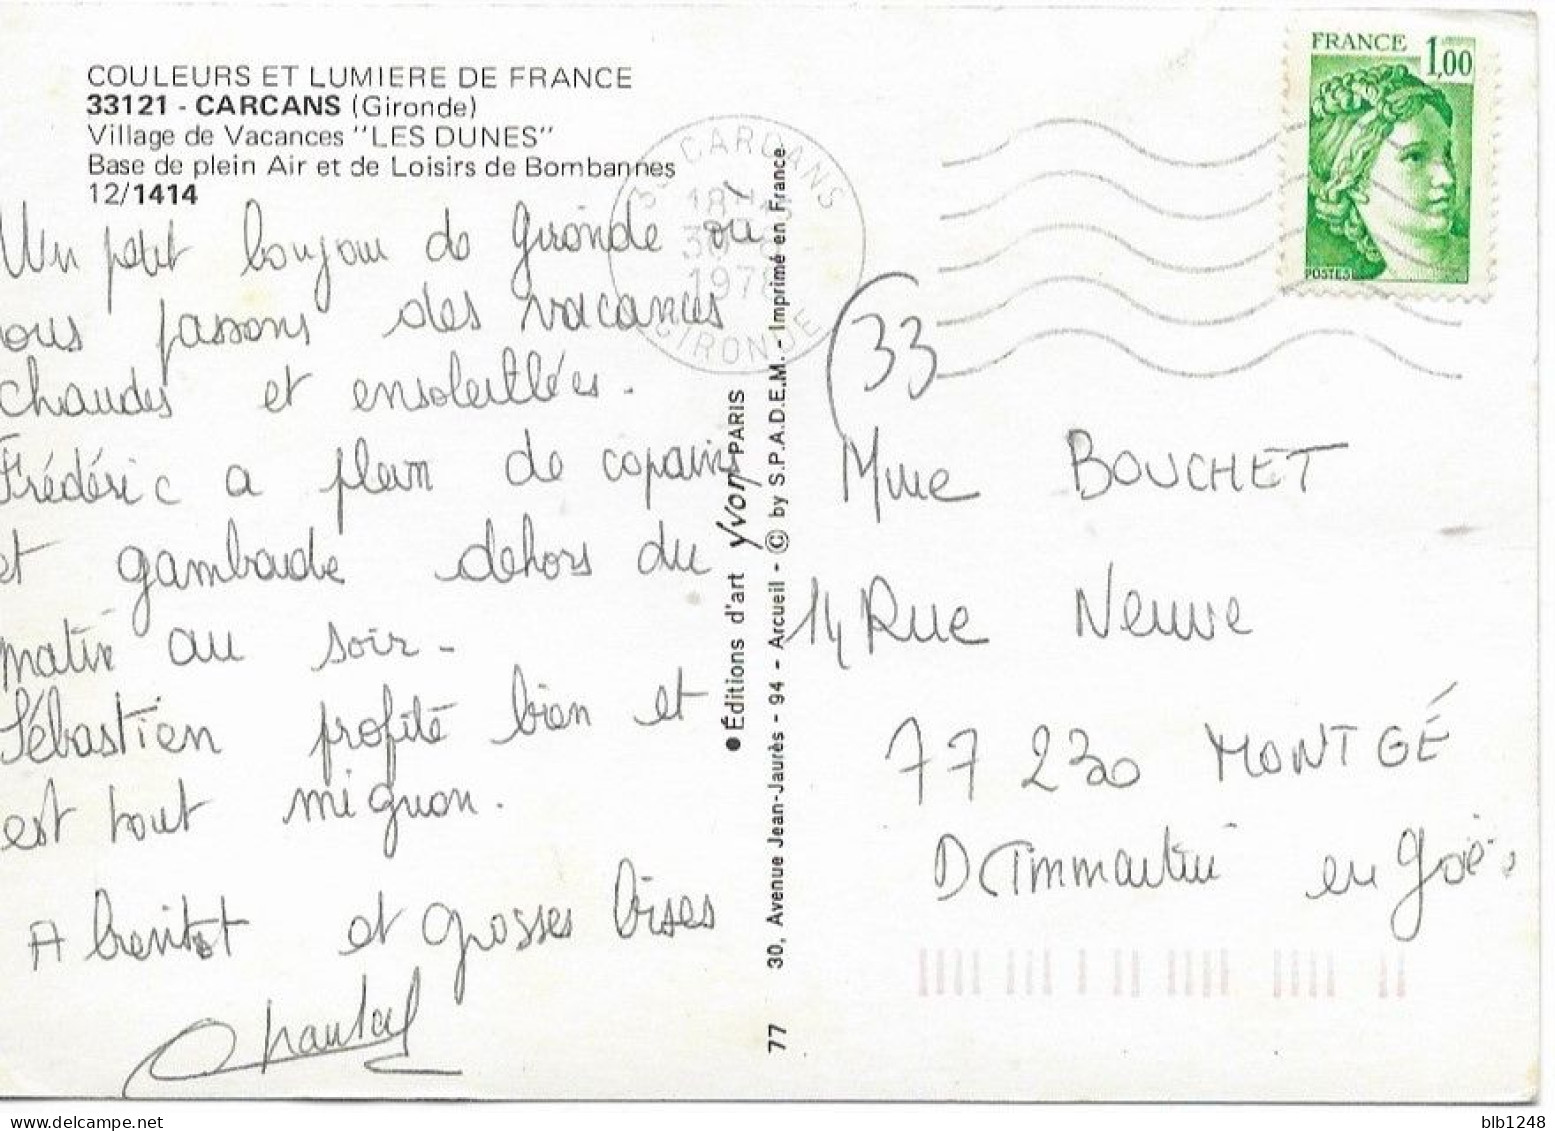 COULEURS ET LUMIERE DE FRANCE
33121 - CARCANS (Gironde)
Village de Vacances "LES DUNES"
Base de plein Air et de Loisirs de Bombannes
12/1414
Un petit bonjour de Gironde où
nous passons des vacances
chaudes et ensoleillées.
Frédéric a plein de copains
et gambade dehors du
matin au soir.
Sébastien profite bien et
est tout mignon.
A bientot et grosses bises
Chantal
● Éditions d'art Yvon PARIS
77 30, Avenue Jean-Jaurès - 94 - Arcueil - © by S.P.A.D.E.M. - Imprimé en France
33 CARCANS
18 H
30
1978
GIRONDE
FRANCE 1,00
POSTES
33
Mme BOUCHET
14 Rue Neuve
77 230 MONTGÉ
Dammartin en Goële
blb1248